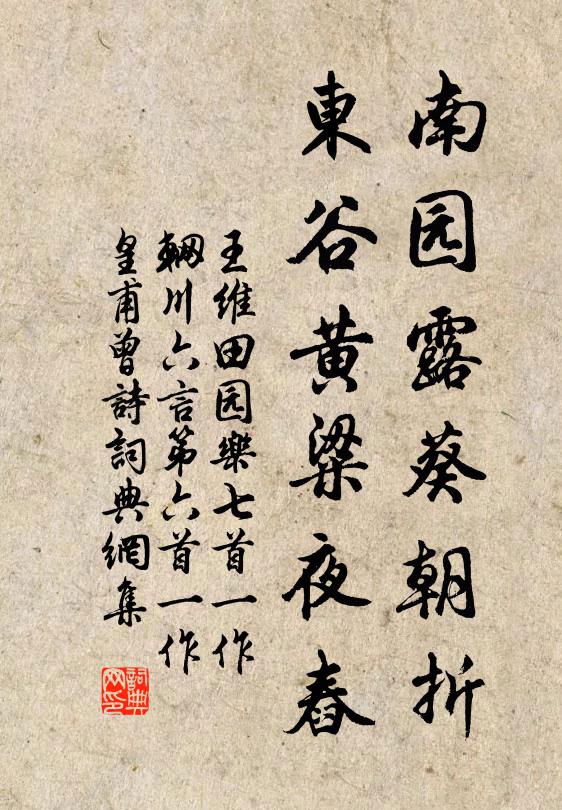 南园露葵朝折
東谷黄粱夜舂
王維田园樂七首一作
輞川六言第六首一作
皇甫曾詩詞典網集
詞典网印